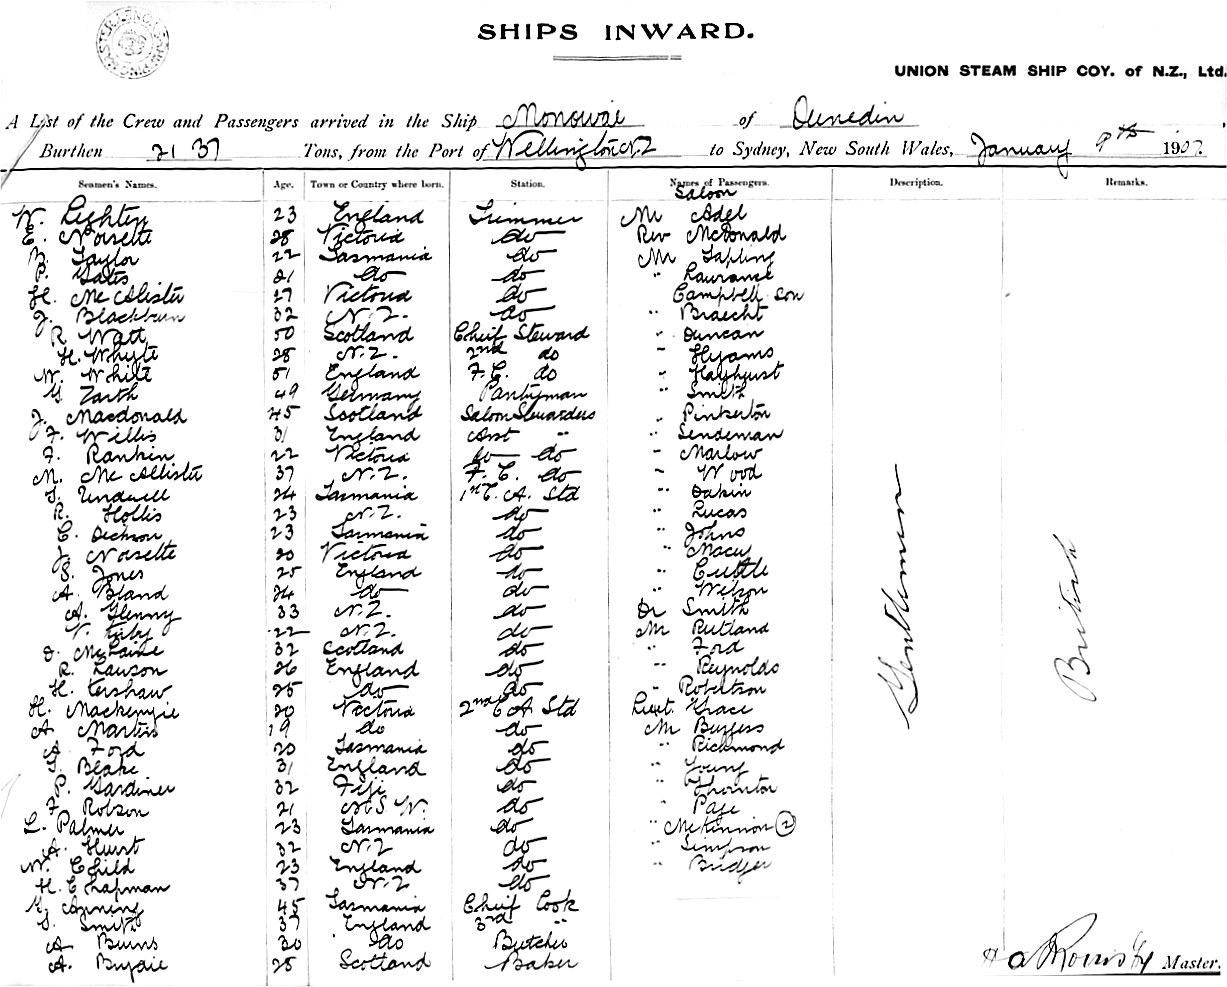 SHIPS INWARD.
UNION STEAM SHIP COY. of N.Z., Ltd.
A List of the Crew and Passengers arrived in the Ship Monowai of Dunedin
Burthen 2137 Tons, from the Port of Wellington N.Z to Sydney, New South Wales, January 9th 1907.
Seamen's Names. Age. Town or Country where born. Station. Names of Passengers. Description. Remarks.
Saloon
W. Leighton 23 England Trimmer Mr Adel
E. Noisette 28 Victoria do Rev McDonald
B. Taylor 22 Tasmania do Mr Tapling
P. Gates 21 do do " Laurance
H. McAlister 27 Victoria do Campbell son
J. Blackburn 32 N.Z. do " Braecht
R Watt 50 Scotland Chief Steward " Duncan
H. Whyte 28 N.Z. 2nd do " Hyams
W. White 51 England F.C. do "
G Zarth 49 Germany Pantryman " Smith
J. Macdonald 45 Scotland Saloon Stewardess " Pinkerton
F. Willis 31 England Asst " " Lendeman
F. Rankin 22 Victoria do do " Marlow
M. McAllister 37 N.Z. F.C. do " Wood
T. Undwell 24 Tasmania 1st C. A. Std " Dakin
R. Hollis 23 N.Z. do " Lucas
C. Dickson 23 Tasmania do " Johns
J. Noisette 20 Victoria do " Macey
S. Jones 25 England do " Cuttle
A. Bland 24 do do " Wilson
A. Glenny 33 N.Z. do Dr Smith
V. Kirby 22 N.Z. do Mr Rutland
D. McFaine 32 Scotland do " Ford
R. Lawson 26 England do " Reynolds
H. Kershaw 25 do do " Robertson
H. Mackenzie 20 Victoria 2nd C A Std Lieut Grace
A. Martin 19 do do Mr Burgess
A. Ford 20 Tasmania do " Richmond
T. Blake 31 England do " Young
P. Gardiner 32 Fiji do " Thornton
F Robson 21 N.S.W. do " Page
L. Palmer 23 Tasmania do " McKinnon (2)
A. Hurst 32 N.Z do " Simpson
W. Child 23 England do " Bridger
H. Chapman 37 N.Z do
G. Anning 45 Tasmania Chief Cook
S. Smith 37 England 3rd "
A Burns 30 do Butcher
A. Bydie 25 Scotland Baker
Gentlemen
British
Master.